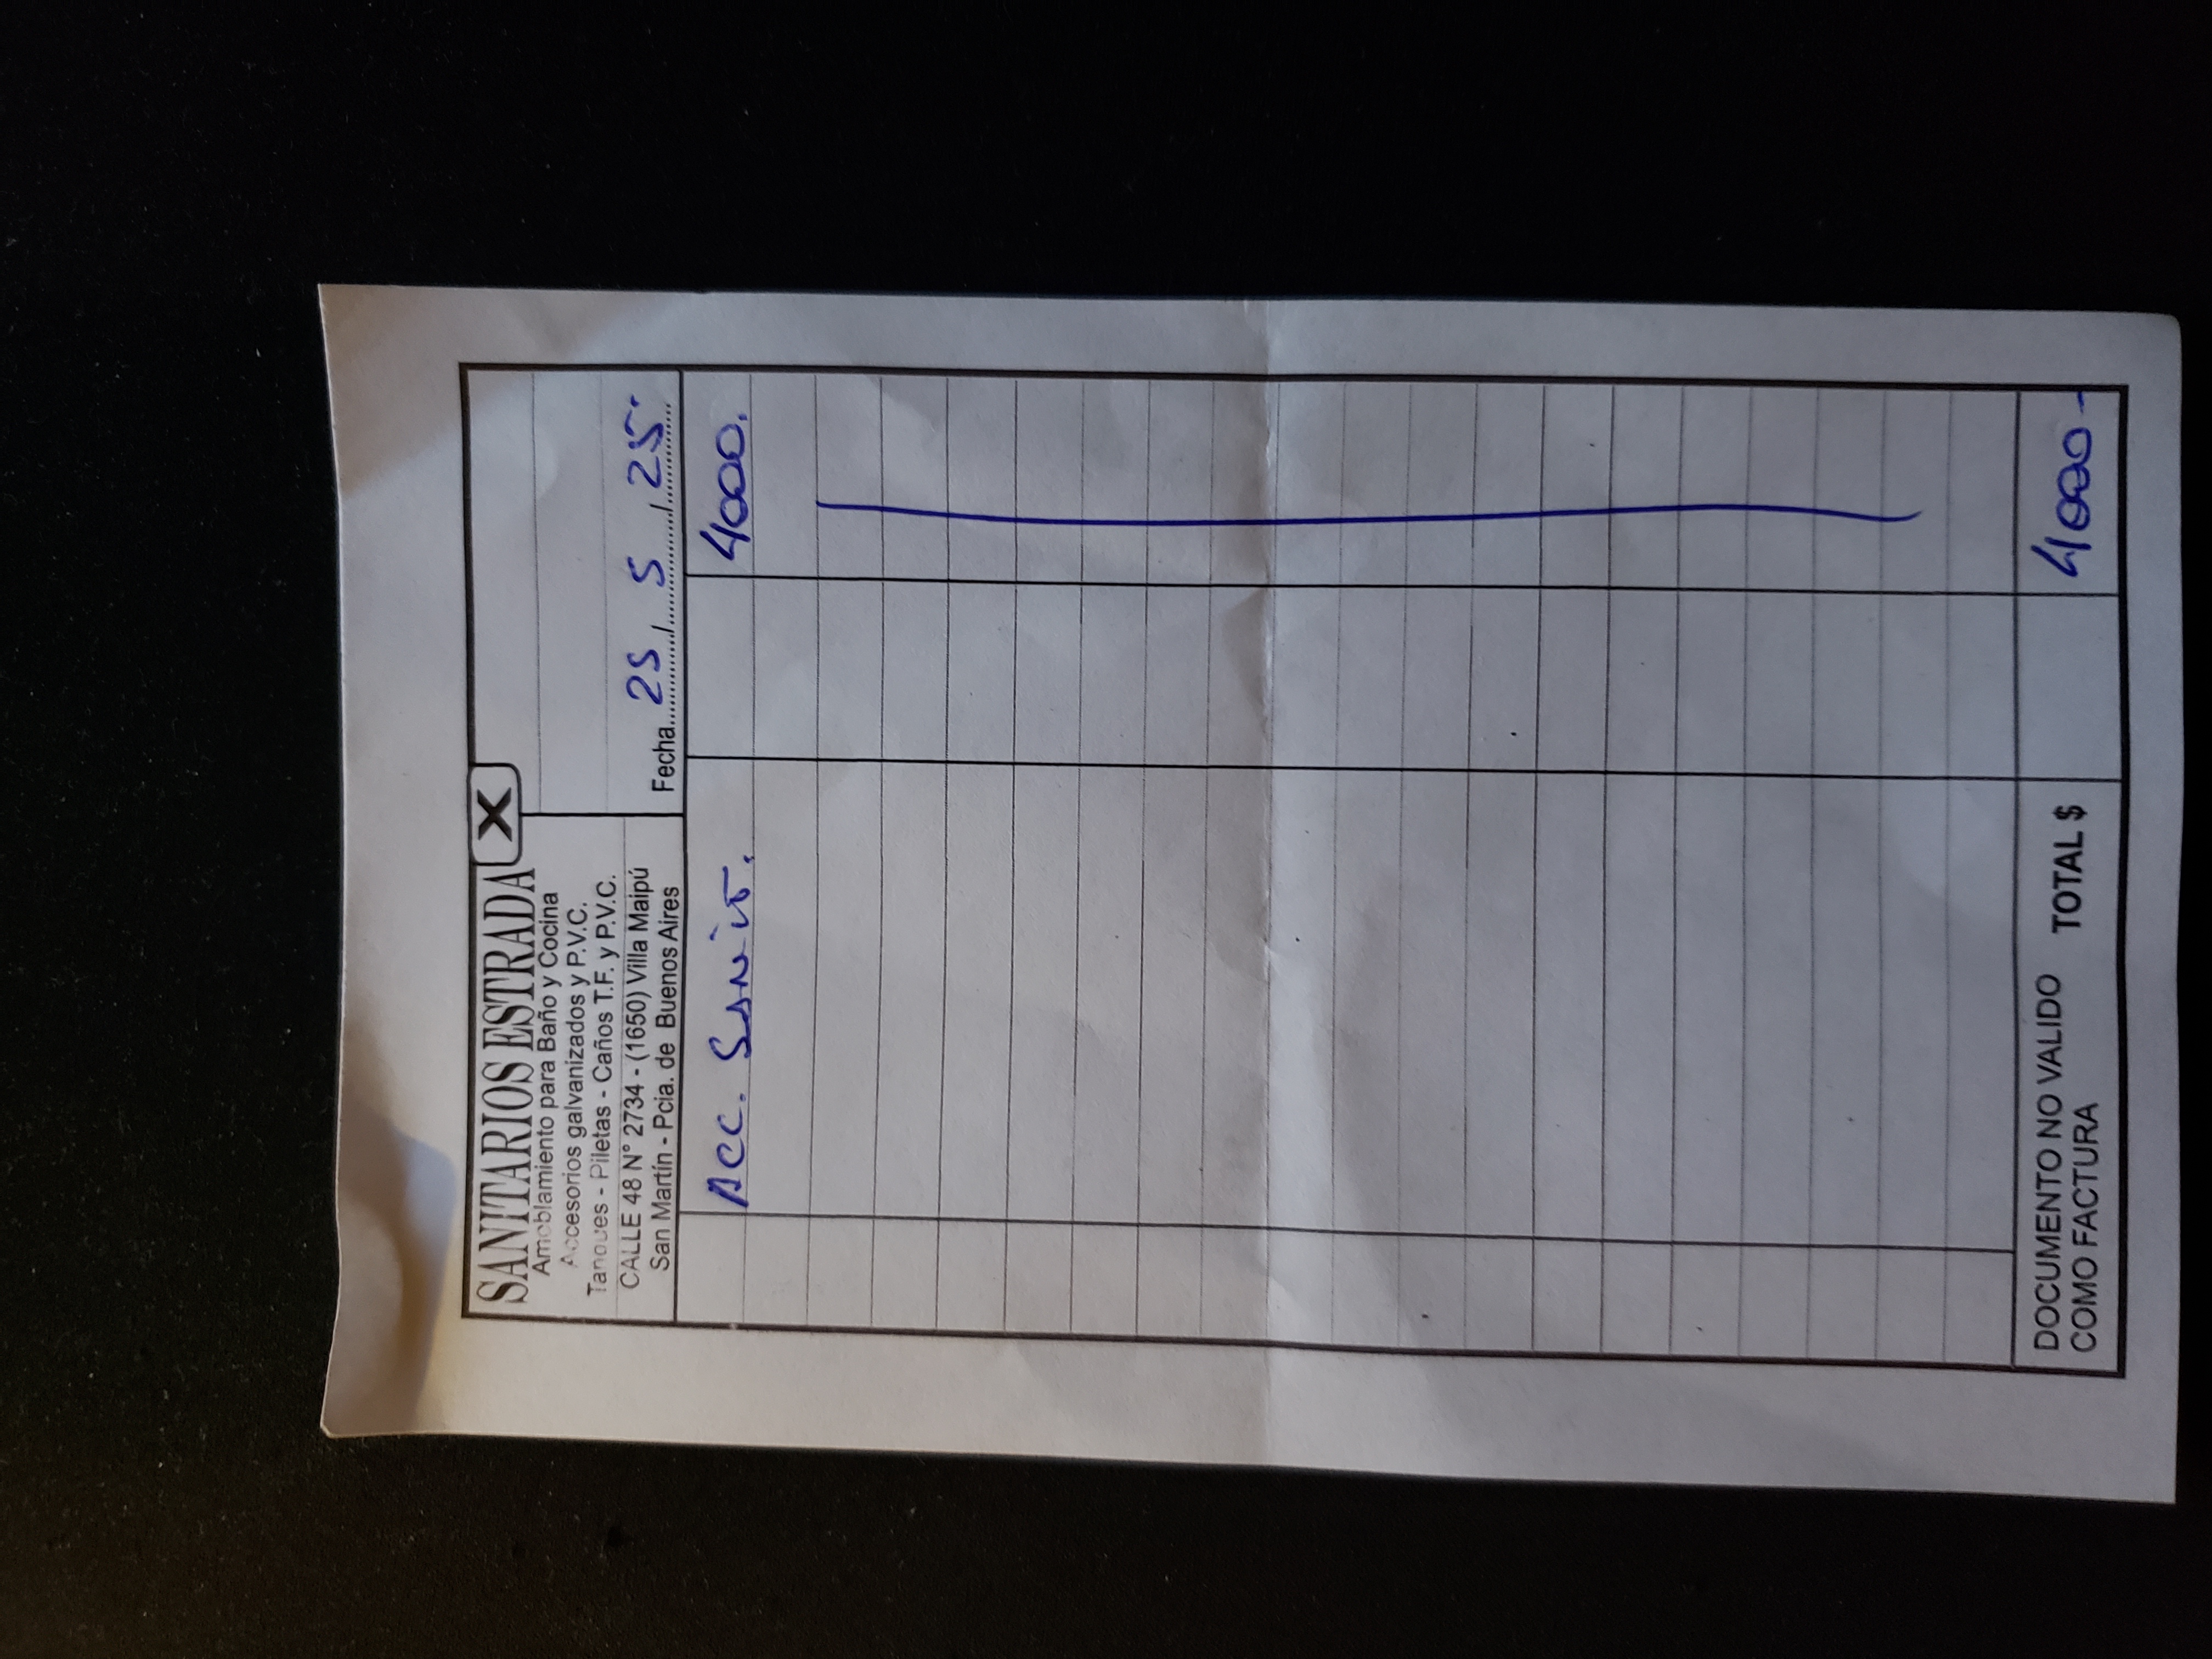 SANITARIOS ESTRADA
X
Ameblamiento para Baño y Cocina
Accesorios galvanizados y P.V.C.
Tanques - Piletas - Caños T.F. y P.V.C.
CALLE 48 N° 2734 - (1650) Villa Maipú
San Martín - Pcia. de Buenos Aires
Fecha 25 / 5 / 25
Acc. Sanit. 4000.
DOCUMENTO NO VALIDO
COMO FACTURA
TOTAL $ 4000-